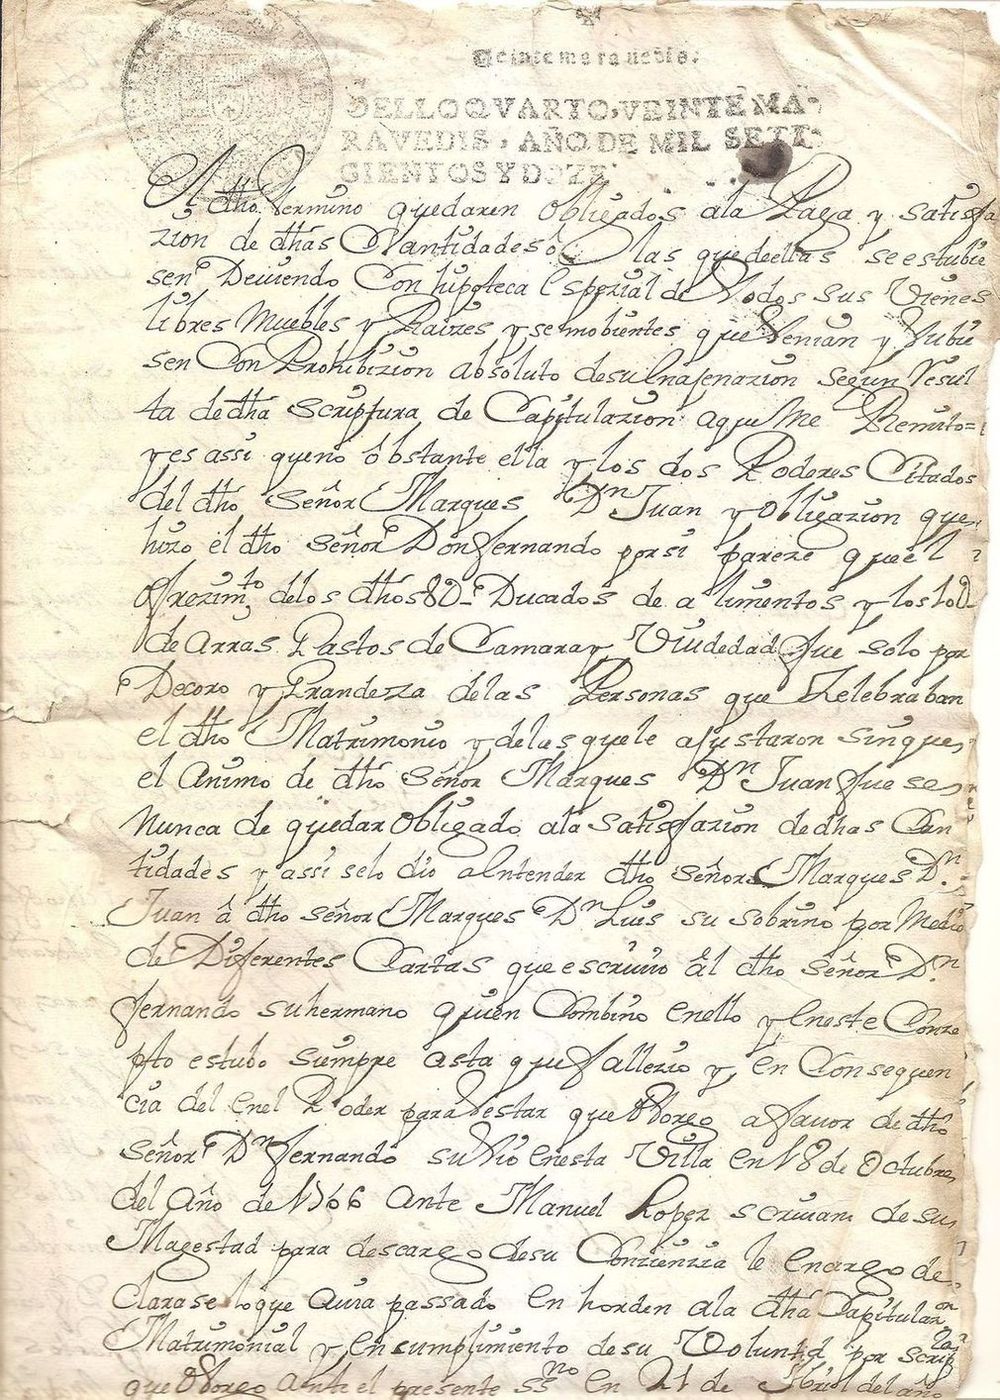 Veinte marauedis.
SELLO QVARTO, VEINTE MA-
RAVEDIS, AÑO DE MIL SETE-
CIENTOS Y DOZE.
dho termino quedaren obligados ala Paga y satisfa
zion de dhas Cantidades o las que de ellas se estubie
sen Deuiendo Con hipoteca Espezial de todos sus Vienes
libres Muebles y Raizes y semobientes que tenian y tubie
sen Con Prohibizion absoluto desu Enajenazion segun Resul
ta de dha scriptura de Capitulazion aque Me Remito=
y es assi que no obstante ella y los dos Poderes Citados
del dho Señor Marques Dn Juan y obligazion que
hizo el dho Señor Don fernando por si pareze que el
ofrezimto delos dhos 8D Ducados de alimentos y los 10D
de arras Gastos de Camara y Viudedad fue solo por
Decoro y Grandezza delas Personas que Zelebraban
el dho Matrimonio y delas que le ajustaron sin que
el Animo de dho Señor Marques Dn Juan fuese
Nunca de quedar obligado ala satisfazion de dhas Can
tidades y assi selo dio a Entender dho señor Marques Dn
Juan â dho señor Marques Dn Luis su sobrino por Medio
de Diferentes Cartas que escriuio âl dho señor Dn
fernando su hermano quien Combino en ello y En este Conze
pto estubo siempre asta que fallezio y en Consequen
cia del En el Poder para testar que otorgo a fauor de dho
Señor Dn fernando su tio En esta Villa En 18 de octubre
del año de 1766 ante Manuel Lopez scriuano de su
Magestad para descargo desu Conzienzia le Encargo de
Clarase lo que auia passado en horden ala dha Capitulazon
Matrimonial y En cumplimiento de su Voluntad por scriptura
que otorgo Ante el presente ssno en 21 de Abril del año